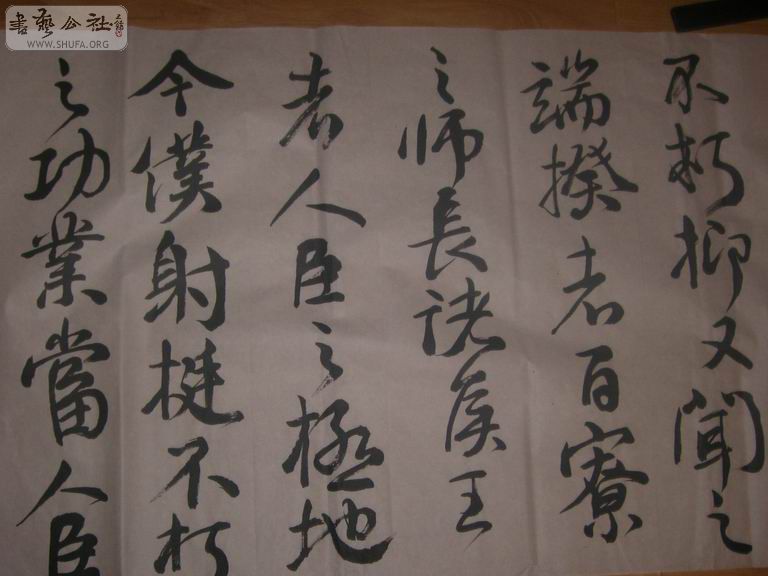 不朽抑又聞之
端揆者百寮
之师長诸侯王
者人臣之極地
今僕射挺不朽
之功業當人臣
書藝公社
WWW.SHUFA.ORG